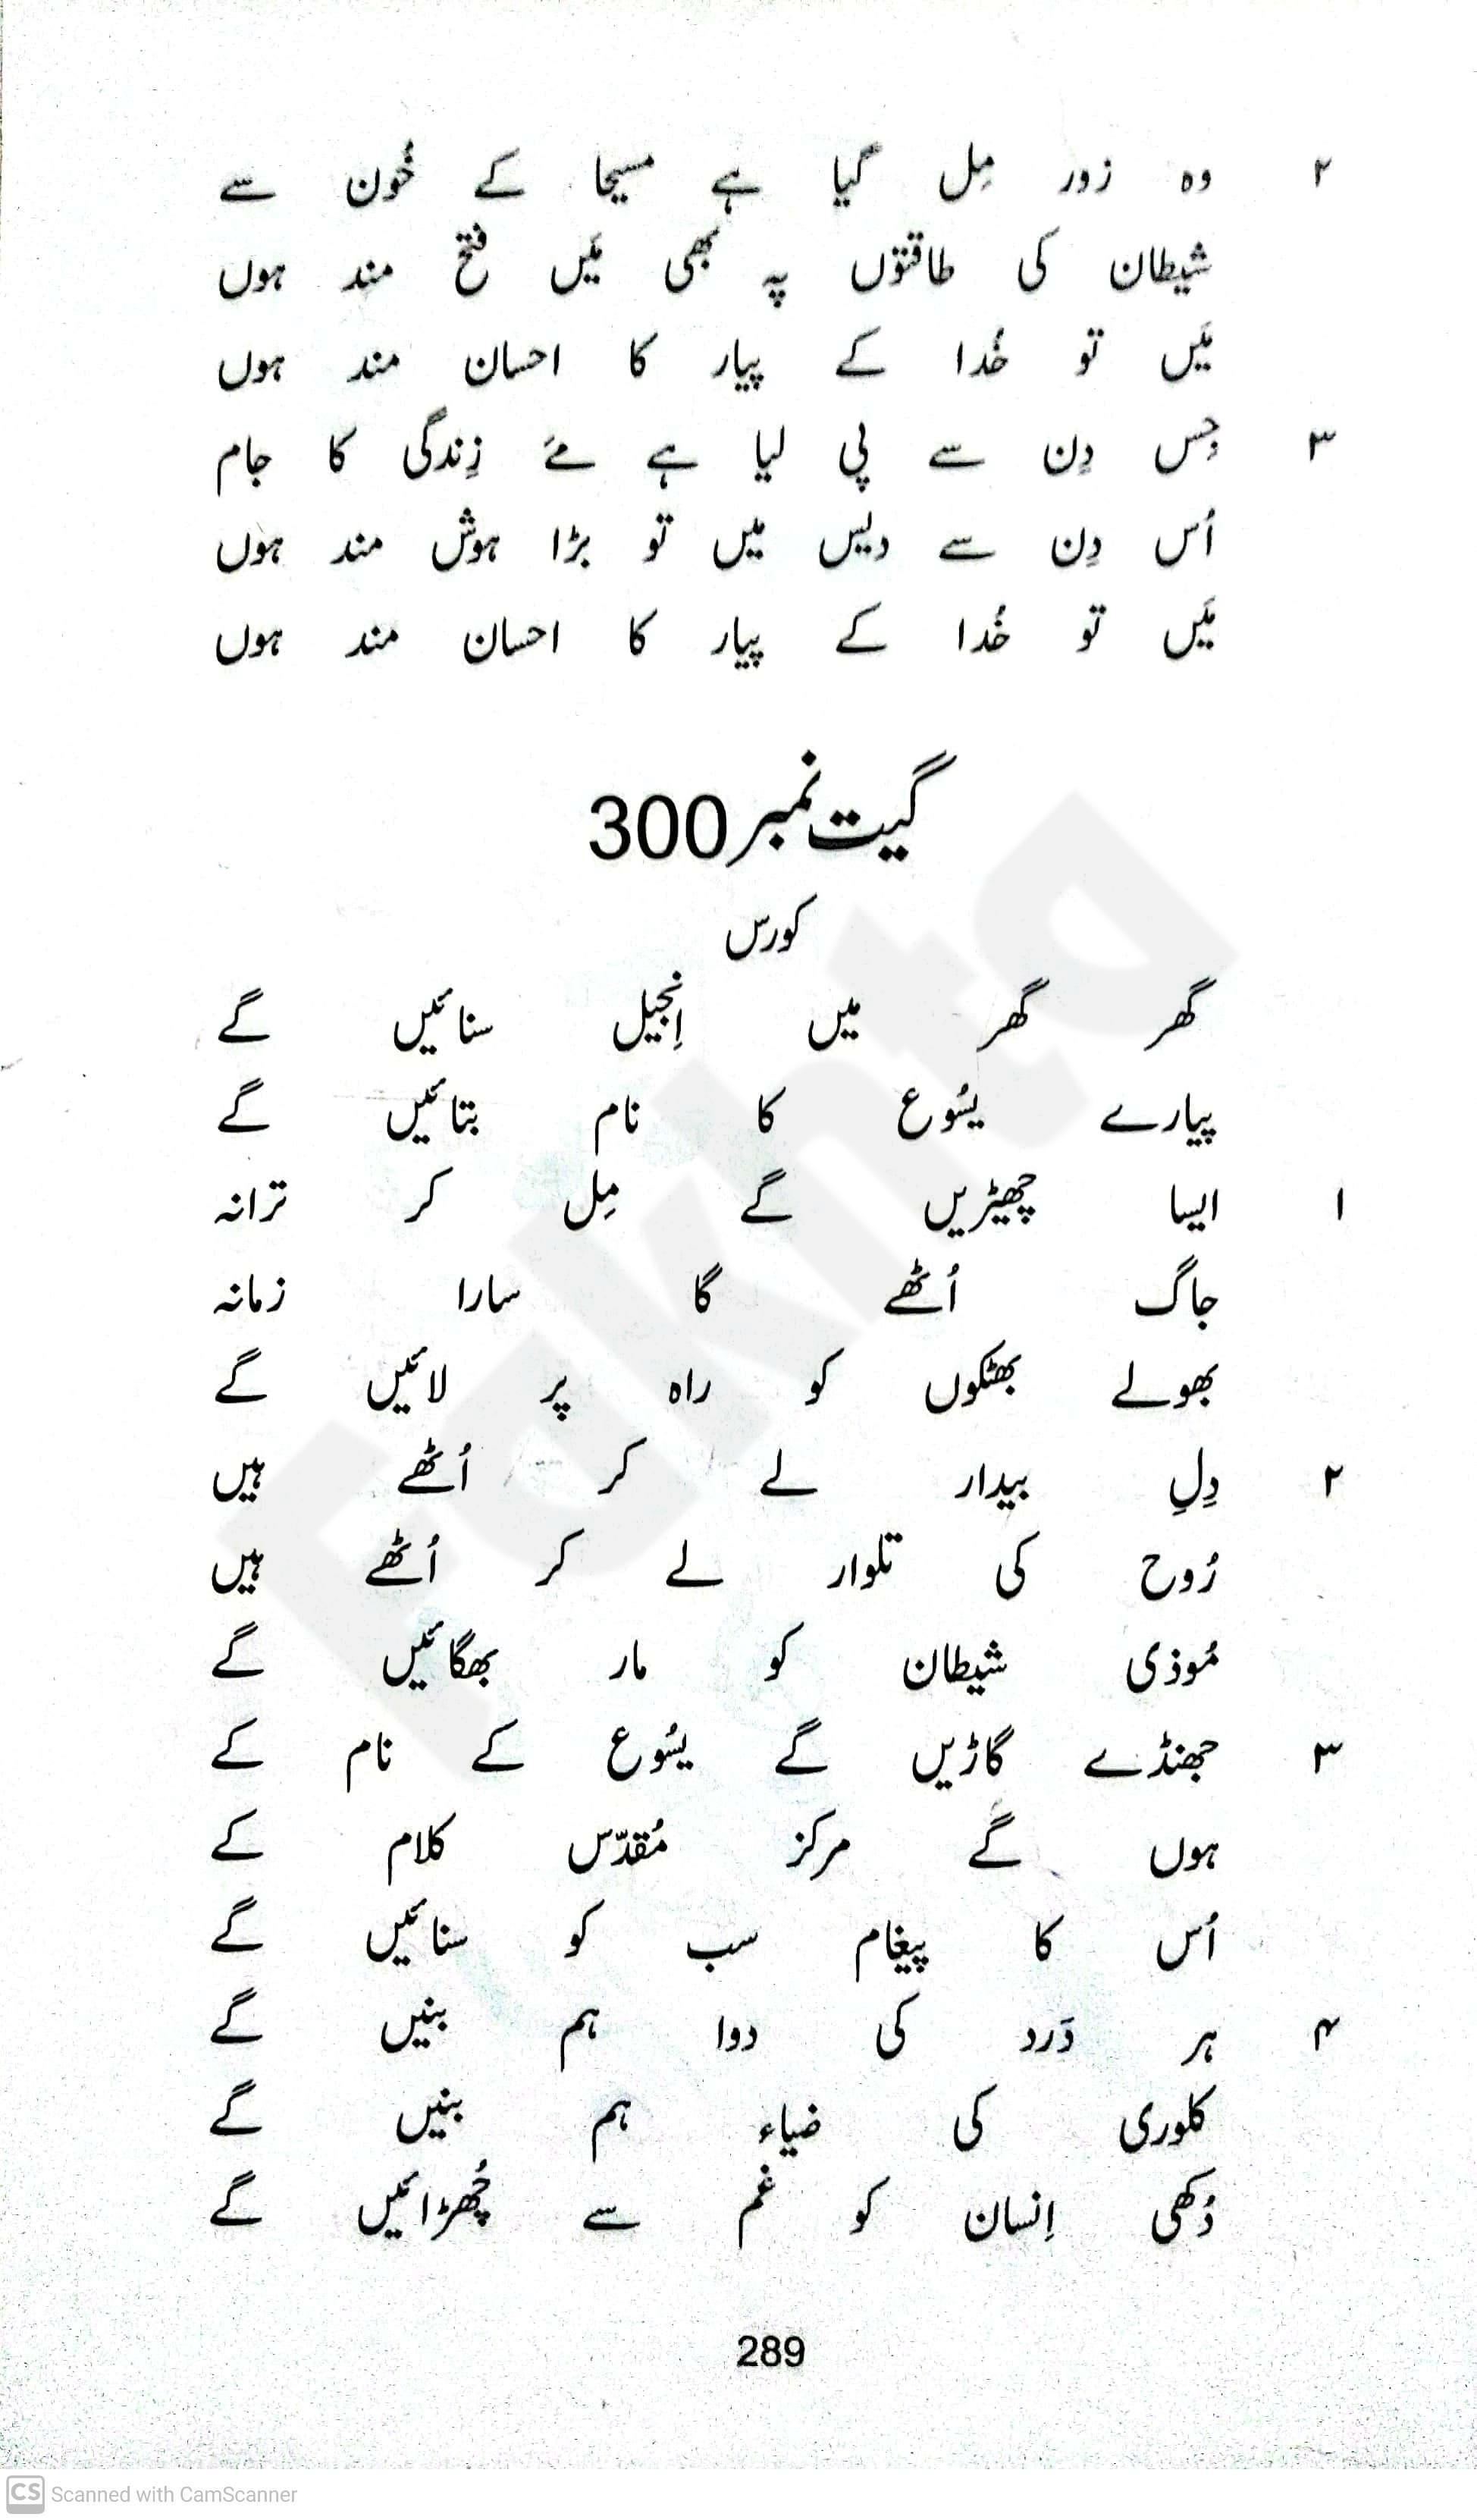 ۲ وہ زور مِل گیا ہے مسیحا کے خُون سے
شیطان کی طاقتوں پہ بھی مَیں فتح مند ہوں
مَیں تو خُدا کے پیار کا احسان مند ہوں
۳ جِس دِن سے پی لیا ہے مۓ زِندگی کا جام
اُس دِن سے دیس میں تو بڑا ہوش مند ہوں
مَیں تو خُدا کے پیار کا احسان مند ہوں
گیت نمبر 300
کورس
گھر گھر میں اِنجیل سنائیں گے
پیارے یسُوع کا نام بتائیں گے
۱ ایسا چھیڑیں گے مِل کر ترانہ
جاگ اُٹھے گا سارا زمانہ
بھولے بھٹکوں کو راہ پر لائیں گے
۲ دِلِ بیدار لے کر اُٹھے ہیں
رُوح کی تلوار لے کر اُٹھے ہیں
مُوذی شیطان کو مار بھگائیں گے
۳ جھنڈے گاڑیں گے یسُوع کے نام کے
ہوں گے مرکز مُقدّس کلام کے
اُس کا پیغام سب کو سنائیں گے
۴ ہر دَرد کی دوا ہم بنیں گے
کلوری کی ضیاء ہم بنیں گے
دُکھی اِنسان کو غم سے چُھڑائیں گے
289
Fakhta
CS Scanned with CamScanner